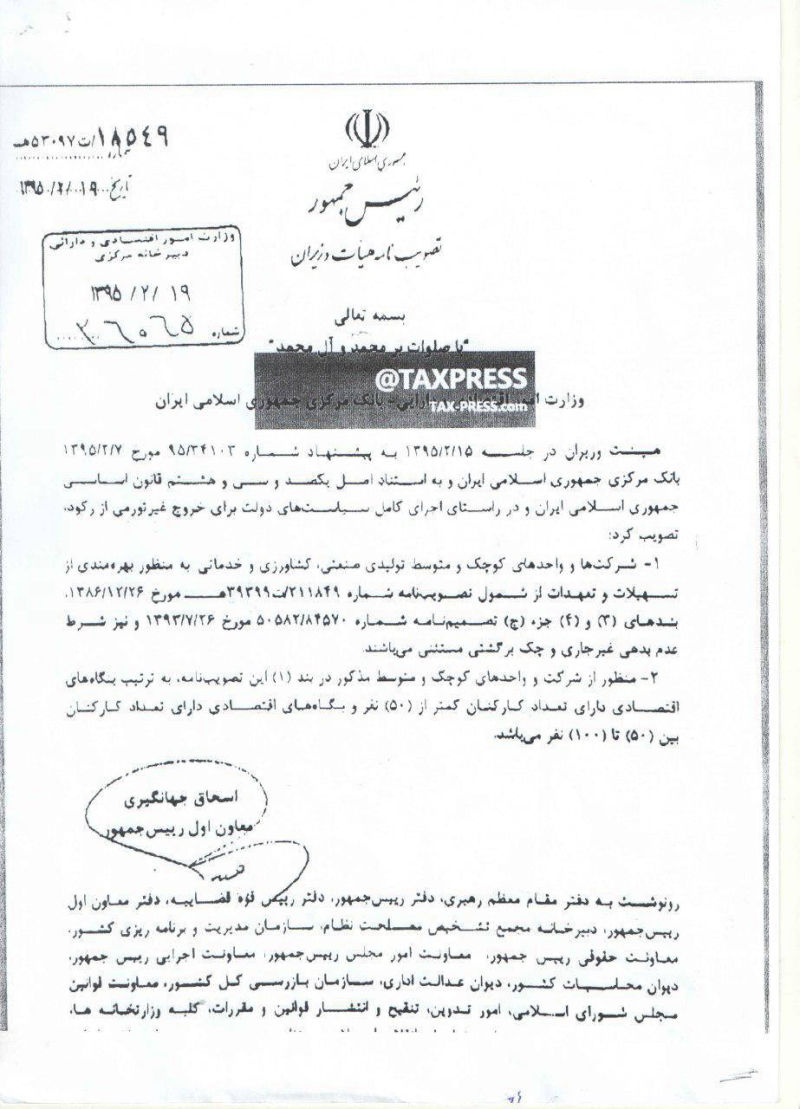 شماره ۱۸۵۴۹/ت۵۳۰۹۷هـ
تاریخ ۱۳۹۵/۲/۱۹
جمهوری اسلامی ایران
رئیس جمهور
تصویب نامه هیأت وزیران
وزارت امور اقتصادی و دارائی
دبیرخانه مرکزی
۱۳۹۵/۲/۱۹
شماره
بسمه تعالی
"با صلوات بر محمد و آل محمد"
@TAXPRESS
TAX-PRESS.com
وزارت امور اقتصادی و دارایی - بانک مرکزی جمهوری اسلامی ایران
هیئت وزیران در جلسه ۱۳۹۵/۲/۱۵ به پیشنهاد شماره ۹۵/۳۴۱۰۳ مورخ ۱۳۹۵/۲/۷
بانک مرکزی جمهوری اسلامی ایران و به استناد اصل یکصد و سی و هشتم قانون اساسی
جمهوری اسلامی ایران و در راستای اجرای کامل سیاست‌های دولت برای خروج غیرتورمی از رکود،
تصویب کرد:
۱- شرکت‌ها و واحدهای کوچک و متوسط تولیدی صنعتی، کشاورزی و خدماتی به منظور بهره‌مندی از
تسهیلات و تعهدات از شمول تصویب‌نامه شماره ۲۱۱۸۴۹/ت۳۹۳۹۹هـ مورخ ۱۳۸۶/۱۲/۲۶،
بندهای (۳) و (۴) جزء (ج) تصمیم‌نامه شماره ۵۰۵۸۲/۸۴۵۷۰ مورخ ۱۳۹۳/۷/۲۶ و نیز شرط
عدم بدهی غیرجاری و چک برگشتی مستثنی می‌باشند.
۲- منظور از شرکت و واحدهای کوچک و متوسط مذکور در بند (۱) این تصویب‌نامه، به ترتیب بنگاه‌های
اقتصادی دارای تعداد کارکنان کمتر از (۵۰) نفر و بگاه‌های اقتصادی دارای تعداد کارکنان
بین (۵۰) تا (۱۰۰) نفر می‌باشد.
اسحاق جهانگیری
معاون اول رییس‌جمهور
رونوشت به دفتر مقام معظم رهبری، دفتر رییس‌جمهور، دفتر رییس قوه قضاییه، دفتر معاون اول
رییس‌جمهور، دبیرخانه مجمع تشخیص مصلحت نظام، سازمان مدیریت و برنامه ریزی کشور،
معاونت حقوقی رییس جمهور، معاونت امور مجلس رییس‌جمهور، معاونت اجرایی رییس جمهور،
دیوان محاسبات کشور، دیوان عدالت اداری، سازمان بازرسی کل کشور، معاونت قوانین
مجلس شورای اسلامی، امور تدوین، تنقیح و انتشار قوانین و مقررات، کلیه وزارتخانه ها،